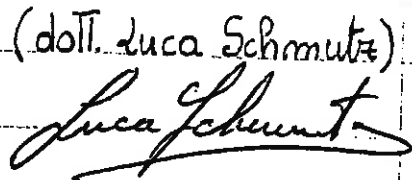 (dott. Luca Schmutz)
Luca Schmutz